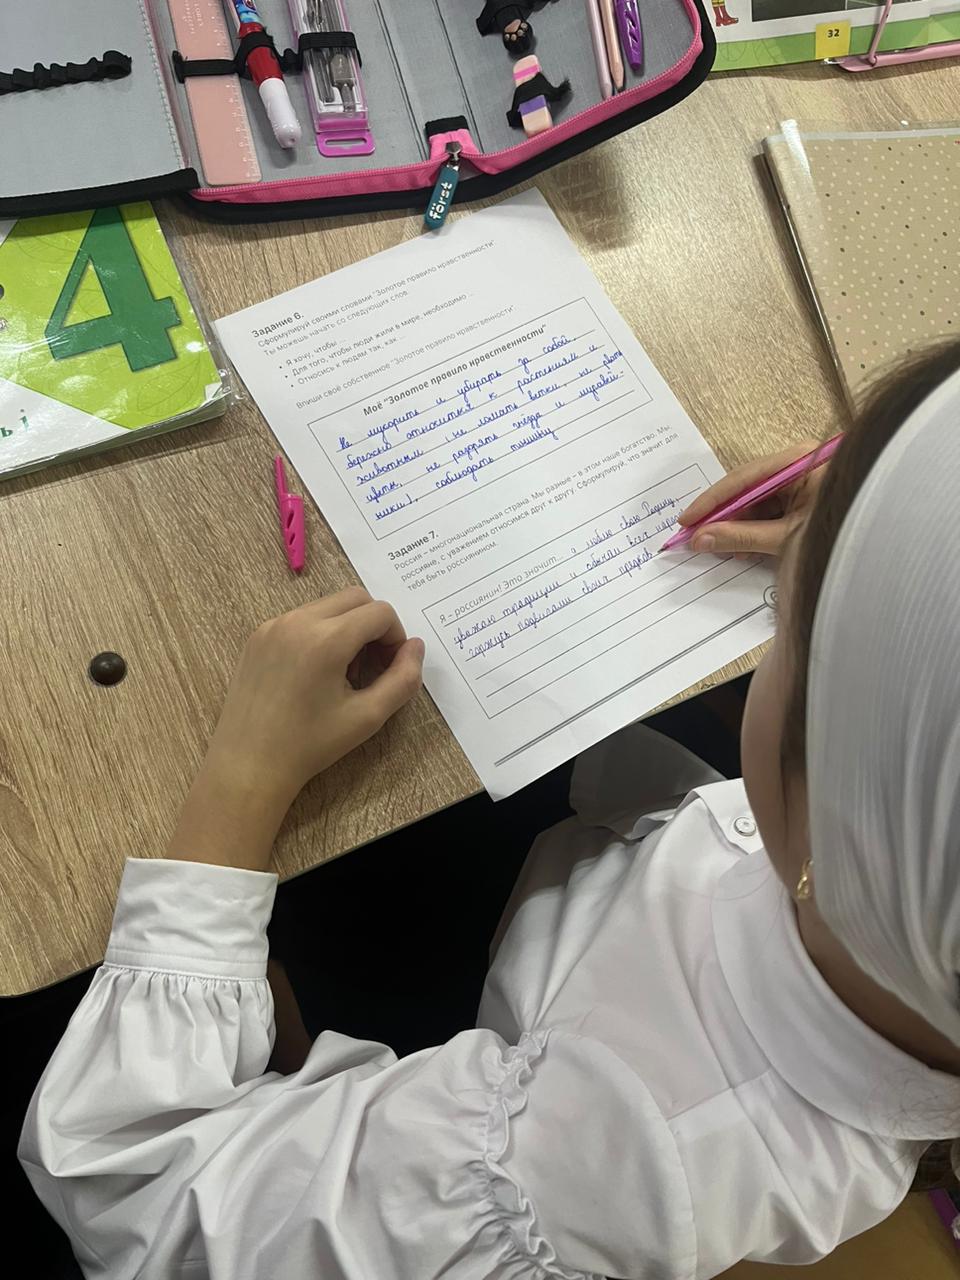 32
först
4
Задание 6.
Сформулируй своими словами "Золотое правило нравственности"
Ты можешь начать со следующих слов:
• Я хочу, чтобы ...
• Для того, чтобы люди жили в мире, необходимо ...
• Относись к людям так, как ...
Впиши своё собственное "Золотое правило нравственности"
Моё "Золотое правило нравственности"
Не мусорить и убирать за собой,
бережно относиться к растениям и
животным (не ломать ветки, не рвать
цветы, не разорять гнёзда и муравей-
ники), соблюдать тишину
Задание 7.
Россия – многонациональная страна. Мы разные – в этом наше богатство. Мы,
россияне, с уважением относимся друг к другу. Сформулируй, что значит для
тебя быть россиянином.
Я – россиянин! Это значит... я люблю свою Родину,
уважаю традиции и обычаи всех народов
горжусь подвигами своих предков